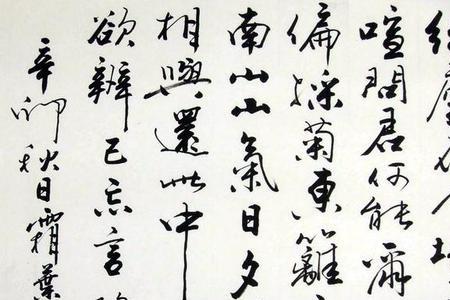 喧問君何能爾
偏採菊東籬
南山山氣日夕
相與還此中
欲辨已忘言
辛卯秋日霜葉